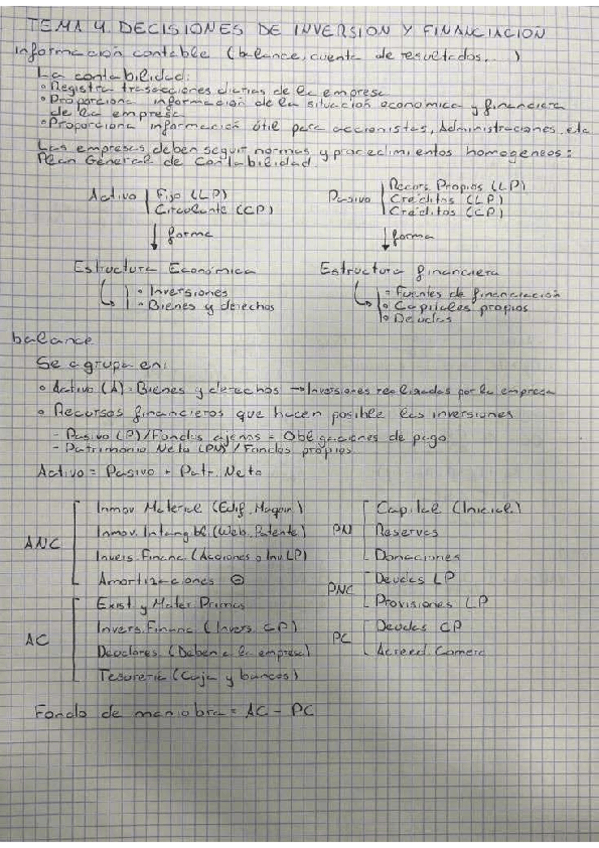 TEMA 4. DECISIONES DE INVERSION Y FINANCIACIÓN
información contable (balance, cuenta de resultados...)
La contabilidad:
• Registra trasacciones diarias de la empresa
• Proporciona información de la situación economica y financiera
de la empresa
• Proporciona información útil para accionistas, Administraciones, etc
Las empresas deben seguir normas y procedimientos homogeneos:
Plan General de Contabilidad.
Activo | Fijo (LP)
Circulante (CP)
↓ forma
Estructura Económica
• Inversiones
• Bienes y derechos
Pasivo | Recurs Propios (LP)
Créditos (LP)
Créditos (CP)
↓ forma
Estructura financiera
• Fuentes de financiación
• Capitales propios
• Deudas
balance
Se agrupa en:
• Activo (A): Bienes y derechos → Inversiones realizadas por la empresa
• Recursos financieros que hacen posible las inversiones
- Pasivo (P)/Fondos ajenos = Obligaciones de pago
- Patrimonio Neto (PN)/Fondos propios
Activo = Pasivo + Patr. Neto
ANC
Inmov Material (Edif, Maquin)
Inmov. Intangibl (Web, Patente)
Invers. Financ (Acciones o Inv LP)
Amortizaciones ⊖
AC
Exist y Mater Primas
Invers. Financ (Invers CP)
Deudores (Deben a la empresa)
Tesoreria (Caja y bancos)
PN
Capital (Inicial)
Reservas
Donaciones
PNC
Deudas LP
Provisiones LP
PC
Deudas CP
Acreed. Comerc
Fondo de maniobra = AC - PC